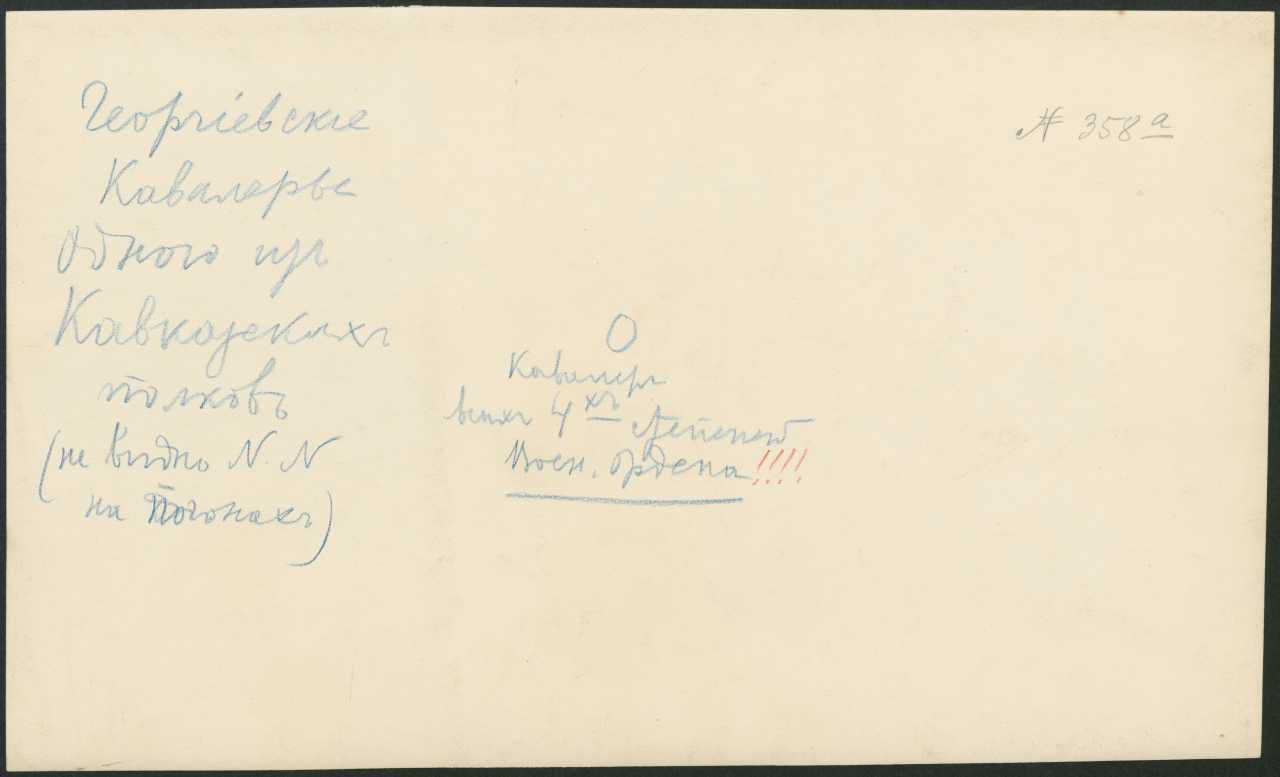 Георгіевскіе
Кавалеры
Одного изъ
Кавказскихъ
полковъ
(не видно N. N
на погонахъ)
№ 358 а
О
Кавалеръ
всѣхъ 4 хъ степеней
Воен. Ордена!!!!